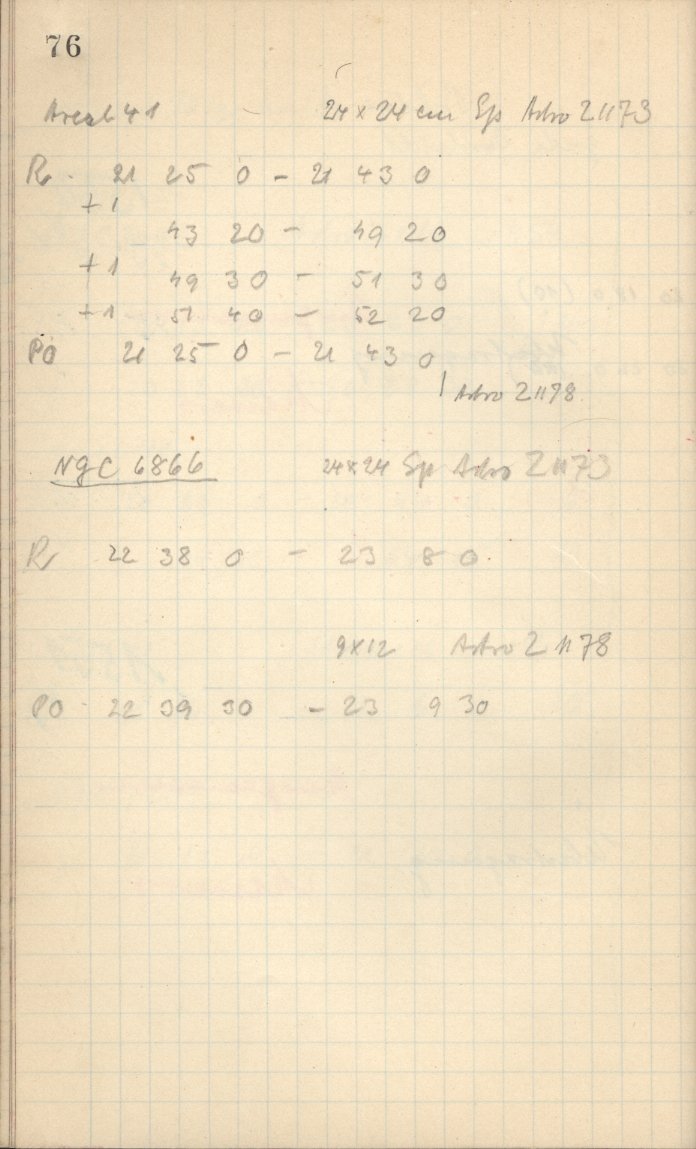 76
Areal 41 24 x 24 cm Sp Astro Z 1173
R 21 25 0 - 21 43 0
+1
43 20 - 49 20
+1 49 30 - 51 30
+1 51 40 - 52 20
PO 21 25 0 - 21 43 0
Astro Z 1178
NGC 6866 24x24 Sp Astro Z 1173
R 22 38 0 - 23 8 0
9x12 Astro Z 1178
PO 22 39 30 - 23 9 30